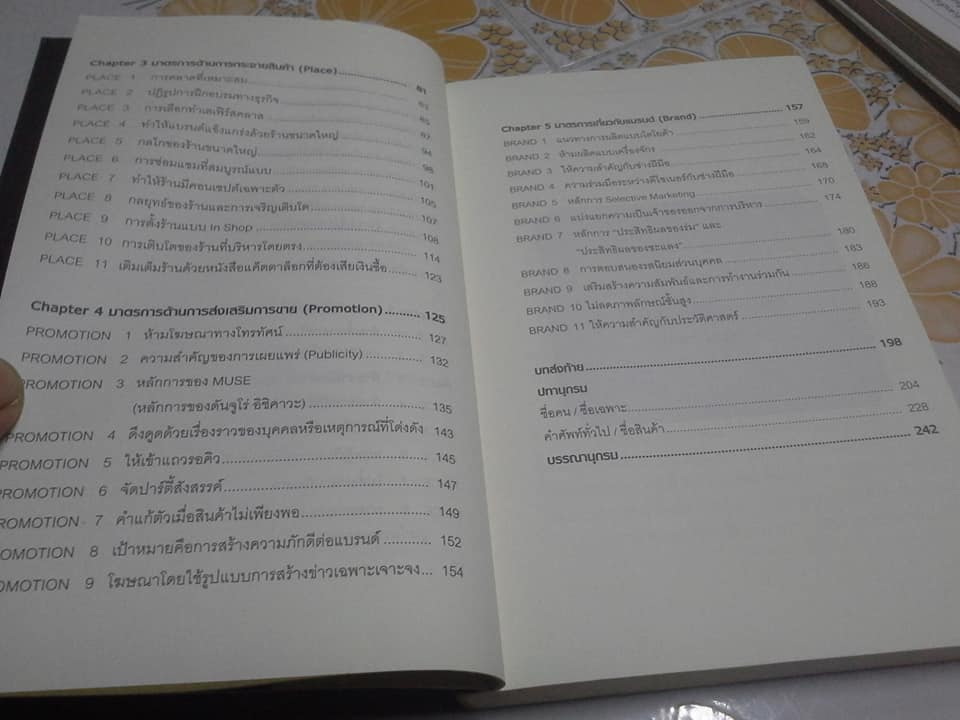 Chapter 3 มาตรการด้านการกระจายสินค้า (Place) 81
PLACE 1 การตลาดที่เหมาะสม
PLACE 2 ปฏิรูปการฝึกอบรมทางธุรกิจ
PLACE 3 การเลือกทำเลเฟิร์สคลาส 85
PLACE 4 ทำให้แบรนด์แข็งแกร่งด้วยร้านขนาดใหญ่ 87
PLACE 5 กลไกของร้านขนาดใหญ่ 94
PLACE 6 การซ่อมแซมที่สมบูรณ์แบบ 98
PLACE 7 ทำให้ร้านมีคอนเซปต์เฉพาะตัว 101
PLACE 8 กลยุทธ์ของร้านและการเจริญเติบโต 105
PLACE 9 การตั้งร้านแบบ In Shop 107
PLACE 10 การเติบโตของร้านที่บริหารโดยตรง 108
114
PLACE 11 เติมเต็มร้านด้วยหนังสือแค็ตตาล็อกที่ต้องเสียเงินซื้อ 123
Chapter 4 มาตรการด้านการส่งเสริมการขาย (Promotion) 125
PROMOTION 1 ห้ามโฆษณาทางโทรทัศน์ 127
PROMOTION 2 ความสำคัญของการเผยแพร่ (Publicity) 132
PROMOTION 3 หลักการของ MUSE
(หลักการของดันจูโร่ อิชิคาวะ) 135
PROMOTION 4 ดึงดูดด้วยเรื่องราวของบุคคลหรือเหตุการณ์ที่โด่งดัง 143
PROMOTION 5 ให้เข้าแถวรอคิว 145
PROMOTION 6 จัดปาร์ตี้สังสรรค์ 147
PROMOTION 7 คำแก้ตัวเมื่อสินค้าไม่เพียงพอ 149
OMOTION 8 เป้าหมายคือการสร้างความภักดีต่อแบรนด์ 152
OMOTION 9 โฆษณาโดยใช้รูปแบบการสร้างข่าวเฉพาะเจาะจง... 154
Chapter 5 มาตรการเกี่ยวกับแบรนด์ (Brand) 157
BRAND 1 แนวทางการผลิตแบบโตโยต้า 159
BRAND 2 ห้ามผลิตแบบเครื่องจักร 162
BRAND 3 ให้ความสำคัญกับช่างฝีมือ 164
BRAND 4 ความร่วมมือระหว่างดีไซเนอร์กับช่างฝีมือ 168
BRAND 5 หลักการ Selective Marketing 170
BRAND 6 แบ่งแยกความเป็นเจ้าของออกจากการบริหาร 174
BRAND 7 หลักการ "ประสิทธิผลของร่ม" และ
"ประสิทธิผลของชะแลง" 180
BRAND 8 การตอบสนองรสนิยมส่วนบุคคล 183
BRAND 9 เสริมสร้างความสัมพันธ์และการทำงานร่วมกัน 186
BRAND 10 ไม่ลดภาพลักษณ์ชั้นสูง 188
BRAND 11 ให้ความสำคัญกับประวัติศาสตร์ 193
บทส่งท้าย 198
ปทานุกรม
ชื่อคน / ชื่อเฉพาะ 204
คำศัพท์ทั่วไป / ชื่อสินค้า 228
บรรณานุกรม 242